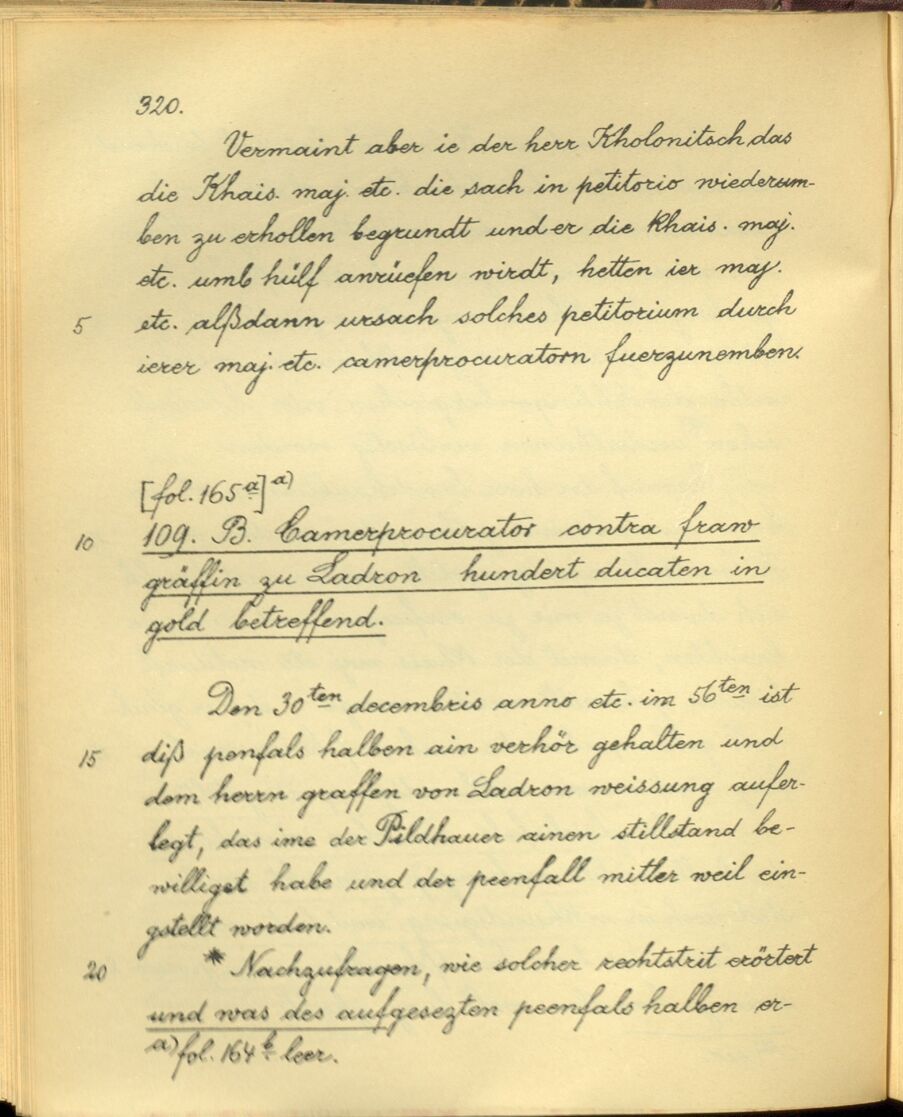 320.
Vermaint aber ie der herr Kholonitsch, das
die Khais. maj. etc. die sach in petitorio wiederum-
ben zu erhollen begrundt und er die khais. maj.
etc. umb hülf anrüefen wirdt, hetten ier maj.
5 etc. alßdann ursach solches petitorium durch
ierer maj. etc. camerprocuratorn fuerzunemben.
[fol. 165a] a)
10 109. B. Camerprocurator contra fraw
gräffin zu Ladron hundert ducaten in
gold betreffend.
Den 30ten decembris anno etc. im 56ten ist
15 diß penfals halben ain verhör gehalten und
dem herrn graffen von Ladron weissung aufer-
legt, das ime der Pildhauer ainen stillstand be-
williget habe und der peenfall mitler weil ein-
gstellt worden.
20 * Nachzufragen, wie solcher rechtstrit erörtert
und was des aufgesezten peenfals halben er-
a) fol. 164b leer.